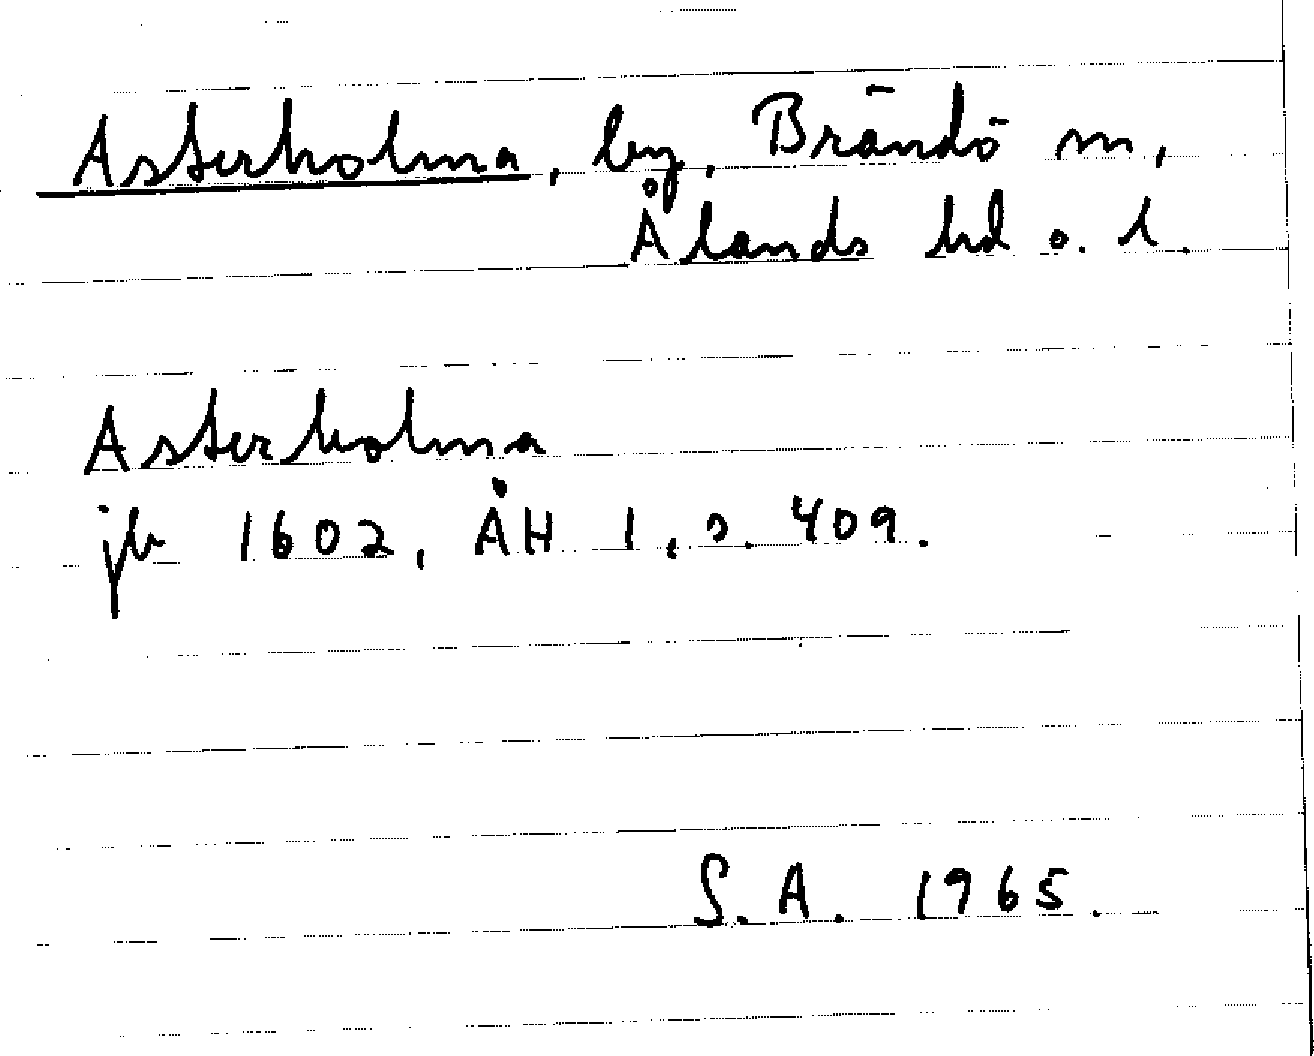 Asterholma, by, Brändö sn,
Ålands hd o. l.
Asterholma
jb 1602, ÅH 1, s. 409.
S. A. 1965.